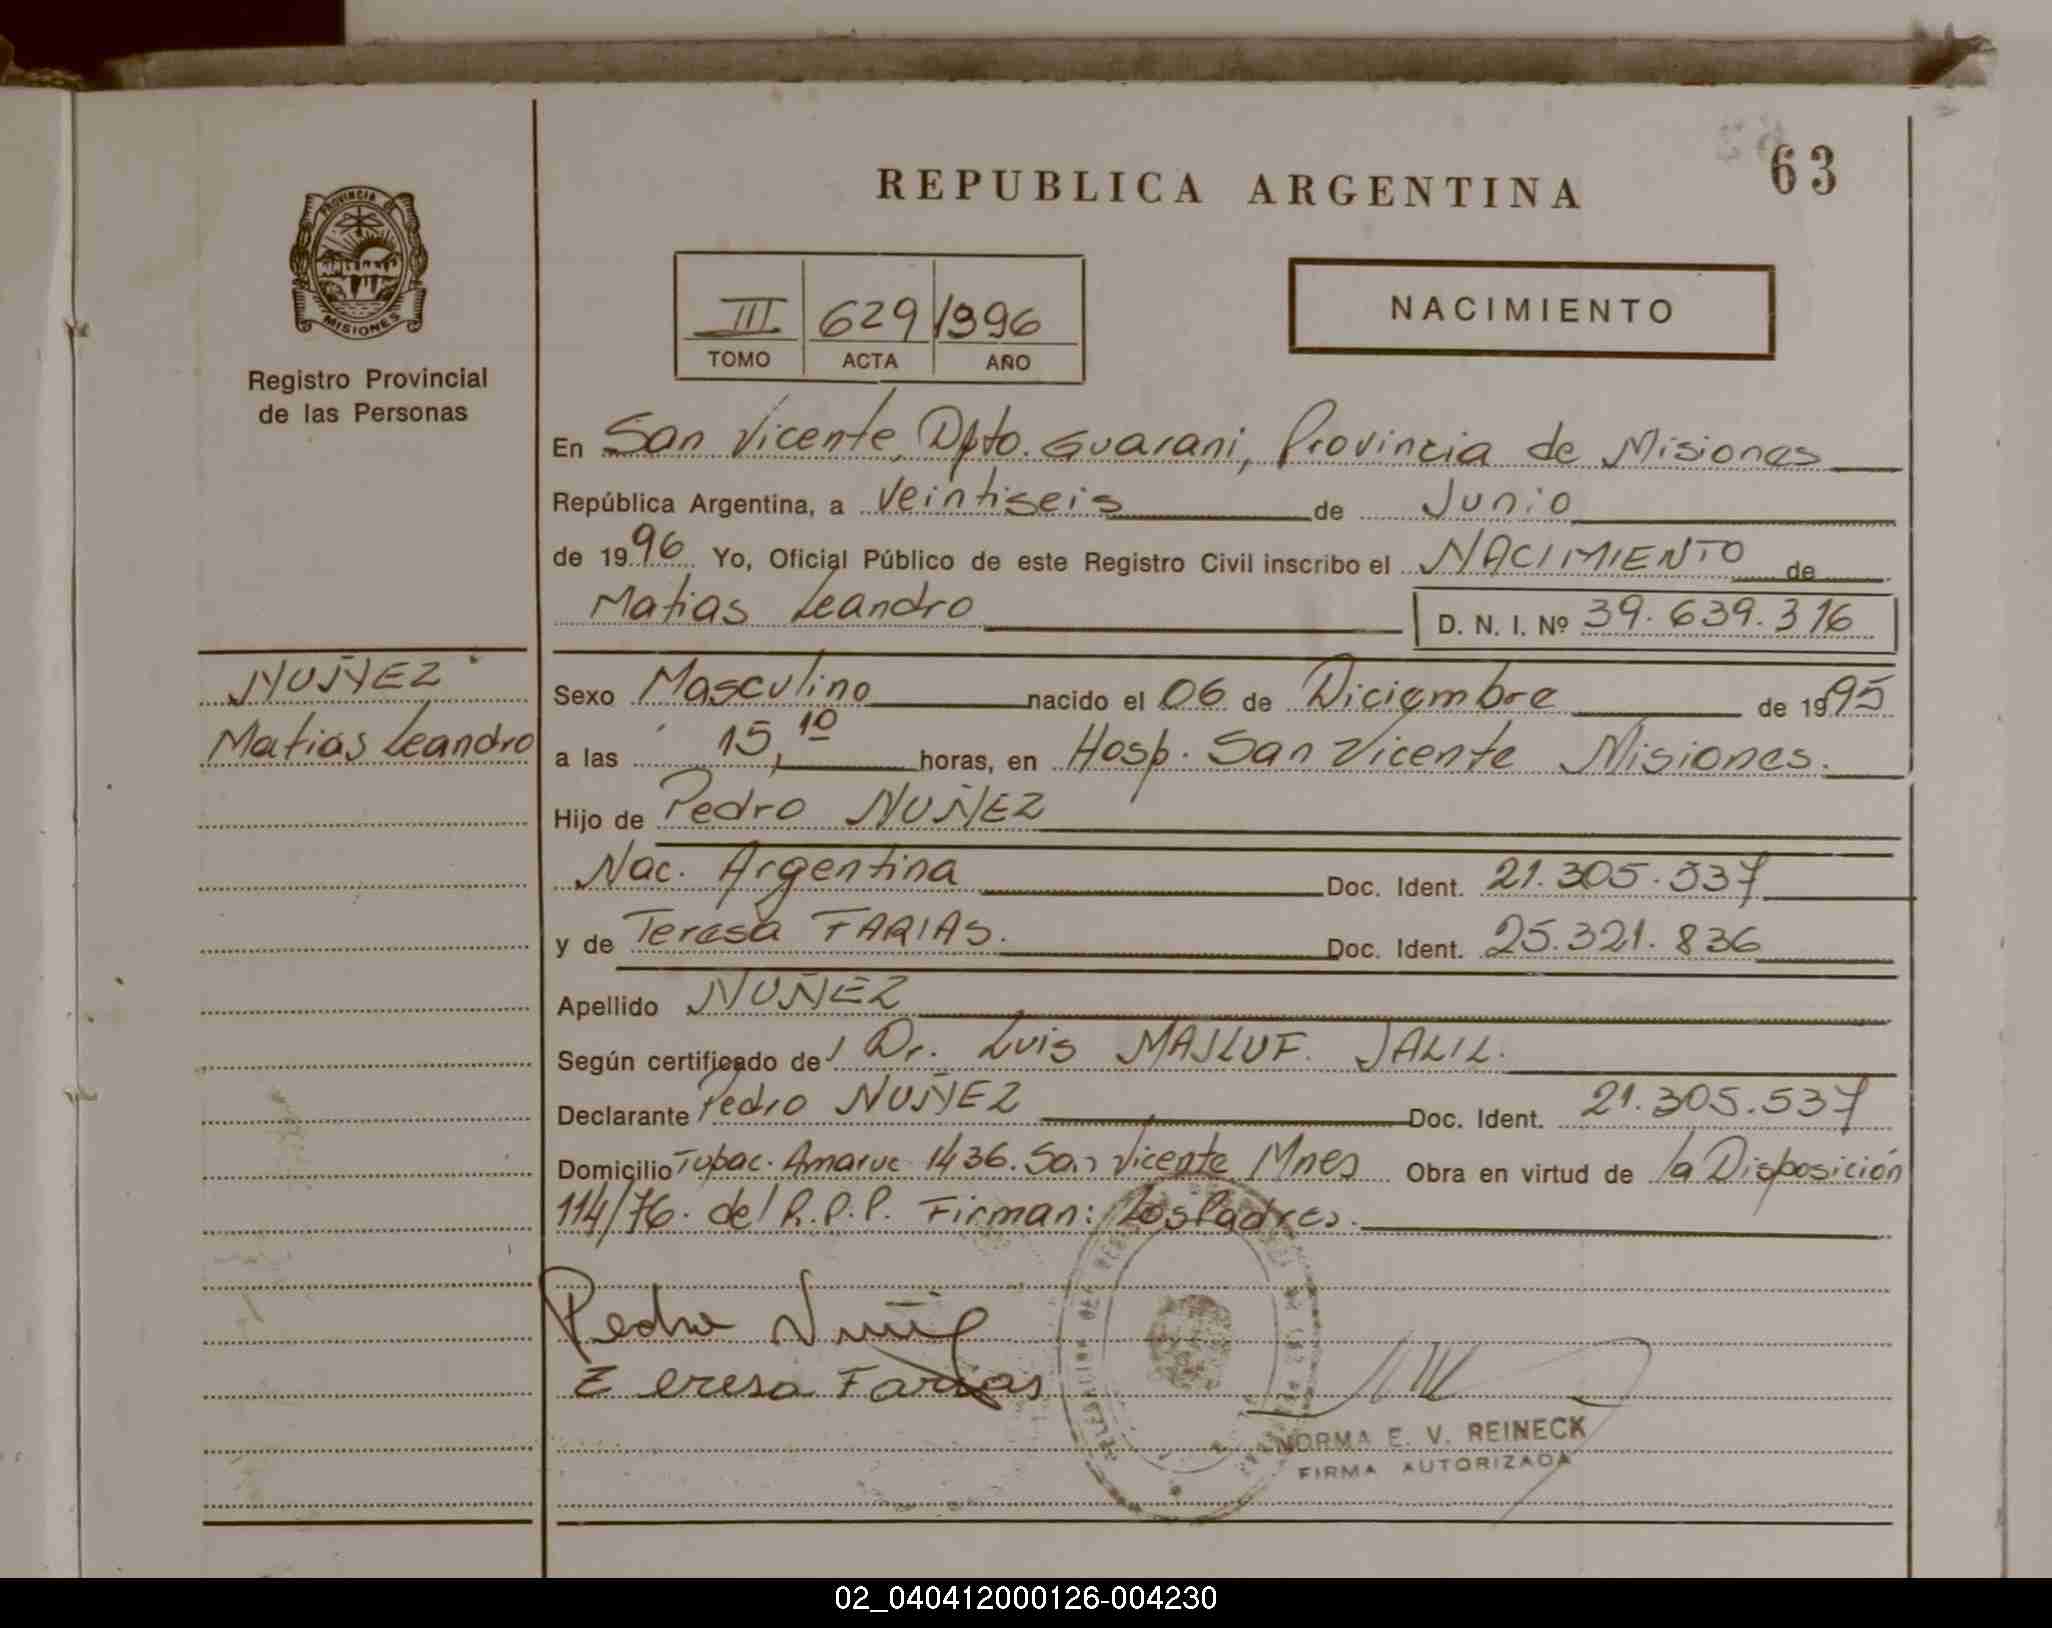 REPUBLICA ARGENTINA
63
PROVINCIA DE
MISIONES
Registro Provincial
de las Personas
III 629 1996
TOMO ACTA AÑO
NACIMIENTO
En San Vicente, Dpto. Guarani, Provincia de Misiones
República Argentina, a Veintiseis de Junio
de 1996 Yo, Oficial Público de este Registro Civil inscribo el NACIMIENTO de
Matias Leandro D. N. I. Nº 39.639.316
NUÑEZ
Matias Leandro
Sexo Masculino nacido el 06 de Diciembre de 1995
a las 15,10 horas, en Hosp. San Vicente Misiones.
Hijo de Pedro NUÑEZ
Nac. Argentina Doc. Ident. 21.305.537
y de Teresa FARIAS. Doc. Ident. 25.321.836
Apellido NUÑEZ
Según certificado de Dr. Luis MAJLUF. JALIL.
Declarante Pedro NUÑEZ Doc. Ident. 21.305.537
Domicilio Tupac. Amaruc 1436. San Vicente Mnes Obra en virtud de la Disposición
114/76. del R.P.P. Firman: Los Padres.
Pedro Nuñez
Teresa Farias
NORMA E. V. REINECK
FIRMA AUTORIZADA
02_040412000126-004230